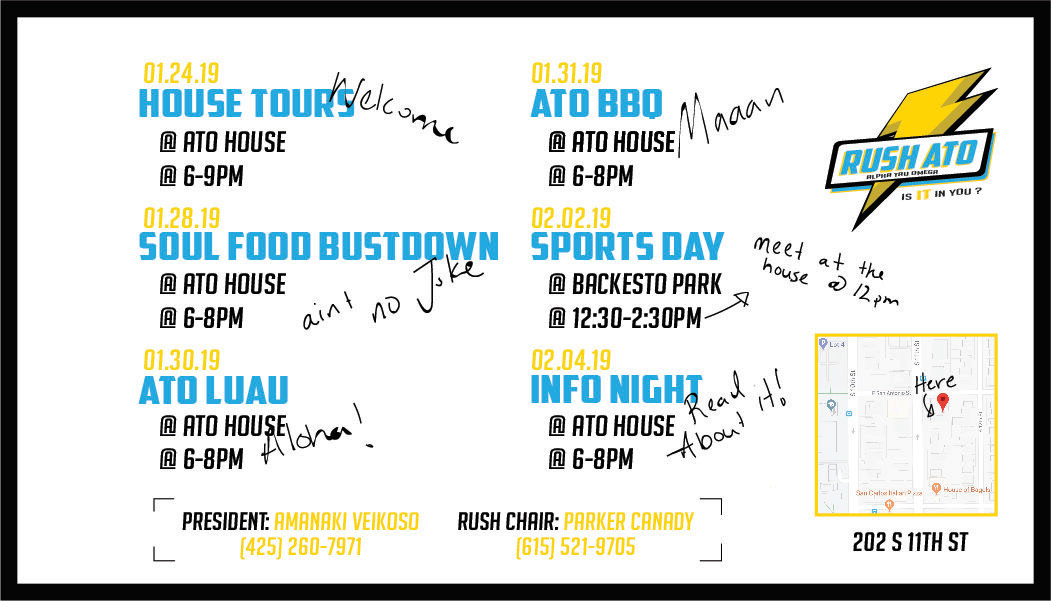 01.24.19
HOUSE TOURS
Welcome
@ ATO HOUSE
@ 6-9PM
01.28.19
SOUL FOOD BUSTDOWN
@ ATO HOUSE
@ 6-8PM
aint no Joke
01.30.19
ATO LUAU
@ ATO HOUSE
@ 6-8PM
Aloha!
01.31.19
ATO BBQ
@ ATO HOUSE
@ 6-8PM
Maaan
02.02.19
SPORTS DAY
@ BACKESTO PARK
@ 12:30-2:30PM
meet at the
house @ 12pm
02.04.19
INFO NIGHT
@ ATO HOUSE
@ 6-8PM
Read
About it!
RUSH ATO
ALPHA TAU OMEGA
IS IT IN YOU ?
Lot 4
S 10th St
S 11th St
E San Antonio St
Here
San Carlos Italian Pizza
House of Bagels
202 S 11TH ST
PRESIDENT: AMANAKI VEIKOSO
(425) 260-7971
RUSH CHAIR: PARKER CANADY
(615) 521-9705